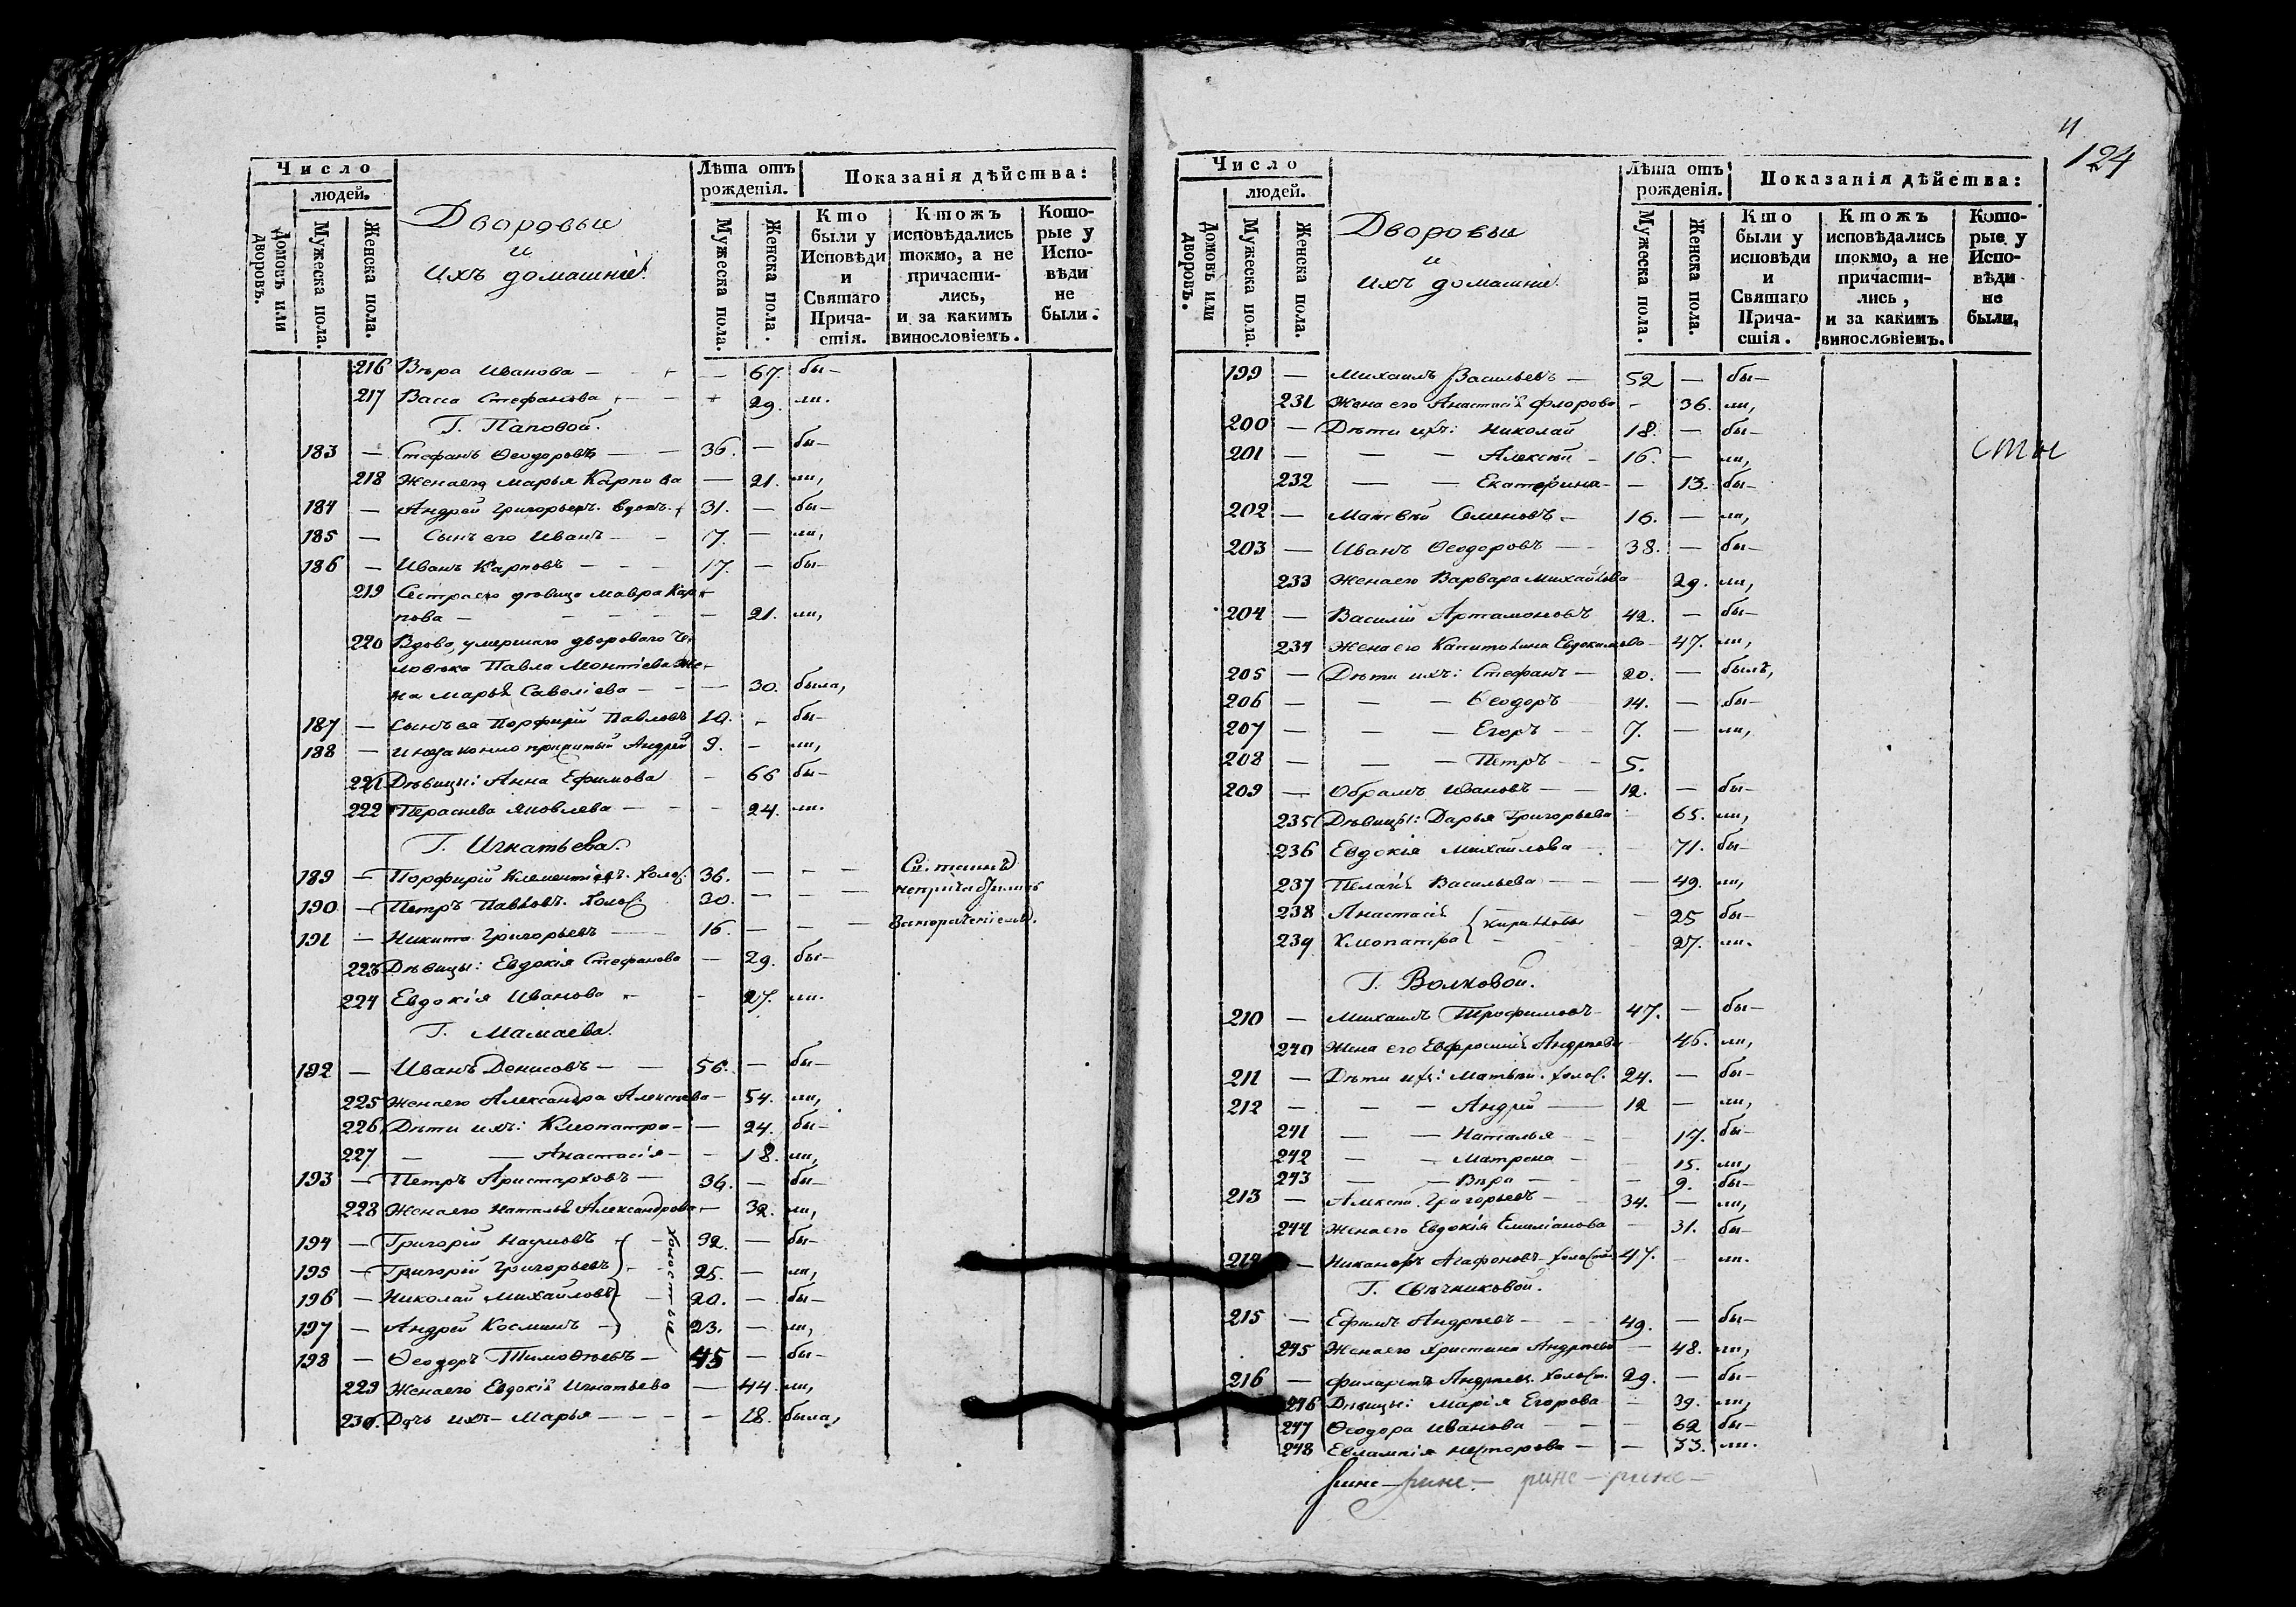 Число
людей.
Домовъ или дворовъ.
Мужеска пола.
Женска пола.
Дворовыи
и
ихъ домашніе.
Лѣта отъ рожденія.
Мужеска пола.
Женска пола.
Показанія дѣйства:
Кто были у Исповѣди и Святаго Причастія.
Ктожъ исповѣдались токмо, а не причастились, и за какимъ винословіемъ.
Которые у Исповѣди не были.
216 Вѣра Иванова — — 67. бы—
217 Васса Стефанова — — 29. ли.
Г. Паповой.
183 — Стефанъ Ѳеодоровъ — — 36. — бы—
218 Жена его Марья Карпова — 21. ли,
184 — Андрей Григорьевъ. вдовъ. 31. — бы—
185 — Сынъ его Иванъ — — 7. — ли,
186 — Иванъ Карповъ — — — 17. — бы—
219 Сестра его дѣвица Мавра Кар-
пова — — — — — 21. ли,
220 Вдова, умершаго двороваго че-
ловѣка Павла Монтіева же-
на Марья Савеліева — — — 30. была,
187 — Сынъ ея Порфирій Павловъ 10. — бы—
188 — Андрей 9. — ли,
221 Дѣвицы: Анна Ефимова — 66 бы—
222 Параскева Яковлева — — — 24. ли.
Г. Игнатьева.
189 — Порфирій Клементіевъ. холос. 36. — — — Св. таинъ
190 — Петръ Павловъ. холос. 30. — — —
191 — Никита Григорьевъ — 16. — — —
223 Дѣвицы: Евдокія Стефанова — 29. бы—
224 Евдокія Иванова — — 27. ли.
Г. Мамаева.
192 — Иванъ Денисовъ — — 56. — бы—
225 Жена его Александра Алексѣева — 54. ли,
226 Дѣти ихъ: Клеопатра — — 24. бы—
227 — — Анастасія — — 18. ли,
193 — Петръ Аристарховъ — 36. — бы—
228 Жена его Наталья Александрова — 32. ли,
194 — Григорій Наумовъ — 32. — бы—
195 — Григорій Григорьевъ — 25. — ли,
196 — Николай Михайловъ — 20. — бы—
197 — Андрей Косминъ — 23. — ли,
холостыи
198 — Ѳеодоръ Тимоѳѣевъ — 45 — бы—
229 Жена его Евдокія Игнатьева — 44. ли,
230. Дочь ихъ — Марья — — — — 18. была,
4
124
Число
людей.
Домовъ или дворовъ.
Мужеска пола.
Женска пола.
Дворовыи
и
ихъ домашніе.
Лѣта отъ рожденія.
Мужеска пола.
Женска пола.
Показанія дѣйства:
Кто были у исповѣди и Святаго Причастія.
Ктожъ исповѣдались токмо, а не причастились, и за какимъ винословіемъ.
Которые у Исповѣди не были.
199 — Михаилъ Васильевъ — 52 — бы—
231 Жена его Анастасія Флорова — 36. ли,
200 — Дѣти ихъ: Николай 18. — бы—
201 — — — Алексѣй — 16. — ли,
232 — — Екатерина — — 13. бы—
202 — Матвѣй Семеновъ — 16. — ли,
203 — Иванъ Ѳеодоровъ — — 38. — бы—
233 Жена его Варвара Михайлова 29. ли,
204 — Василій Артамоновъ 42. — бы—
234 Жена его Капитолина Евдокимова — 47. ли,
205 — Дѣти ихъ: Стефанъ — 20. — былъ,
206 — — — Ѳеодоръ — 14. — бы—
207 — — — Егоръ — — 7. — ли,
208 — — — Петръ — — 5.
209 — Обрамъ Ивановъ — — 12. — бы—
235 Дѣвицы: Дарья Григорьева — 65. ли,
236 Евдокія Михайлова — — 71. бы—
237 Пелагія Васильева — — — 49. ли,
238 Анастасія — 25 бы—
239 Клеопатра — 27. ли.
Кириловы
Г. Волковой.
210 — Михаилъ Трофимовъ — 47. — бы—
240 Жена его Евфросинія Андреева — 46. ли,
211 — Дѣти ихъ: Матвѣй. холос. 24. — бы—
212 — — — Андрей — 12 — ли,
241 — — Наталья — — 17. бы—
242 — — Матрена — — 15. ли,
243 — — Вѣра — — — 9. бы—
213 — Алексѣй Григорьевъ — — 34. — ли,
244 Жена его Евдокія Емиліанова — 31. бы—
214 — Никаноръ Агафоновъ — холостъ 47. — ли.
Г. Свѣчниковой.
215 — Ефимъ Андреевъ — — 49. — бы—
245 Жена его Христина Андреева — 48. ли,
216 — Филаретъ Андреевъ. холост. 29. — бы—
246 Дѣвицы: Марія Егорова — 39. ли,
247 Ѳеодора Иванова — — — 62 бы—
248 Евлампія Несторова — — 33. ли.
сты